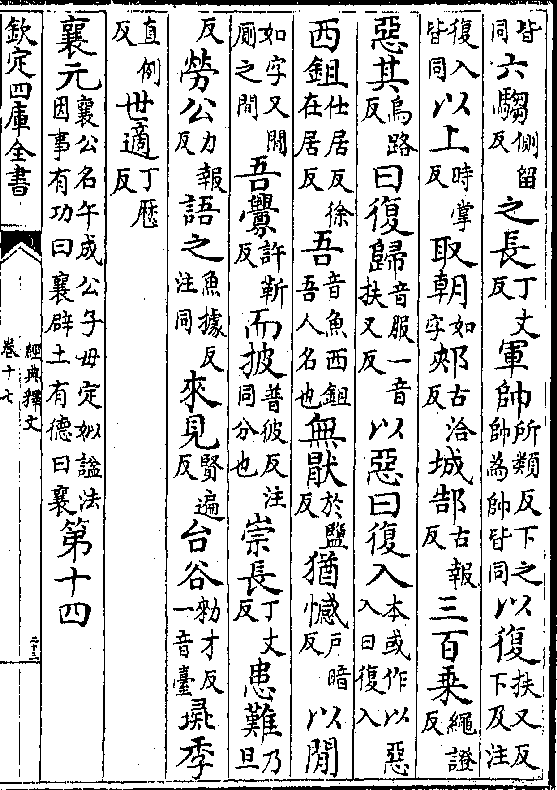 皆同六騶側留反之長丁丈反軍帥所類反下之帥為帥皆同以復扶又反下及注
復入皆同以上時掌反取朝如字郟古洽反城郜古報反三百乘繩證反
惡其烏路反曰復歸音服一音扶又反以惡曰復入本或作以惡入曰復入
西鉏仕居反徐在居反吾音魚西鉏吾人名也無厭於鹽反猶憾戶暗反以閒
如字又閒廁之間吾釁許靳反而披普彼反注同分也崇長丁丈反患難乃旦
反勞公力報反語之魚據反注同來見賢遍反台谷勑才反一音臺彘季
直例反世適丁歷反
襄元襄公名午成公子母定姒謚法因事有功曰襄辟土有德曰襄第十四
欽定四庫全書
經典釋文
卷十七